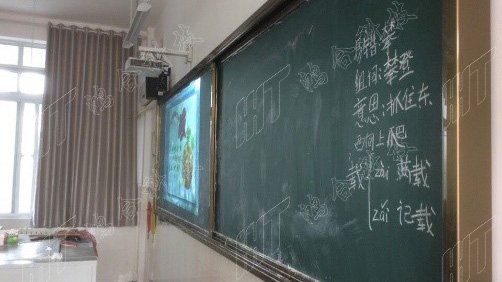 攀
组词:攀登
意思:抓住东
西向上爬
载 zài 满载
zǎi 记载